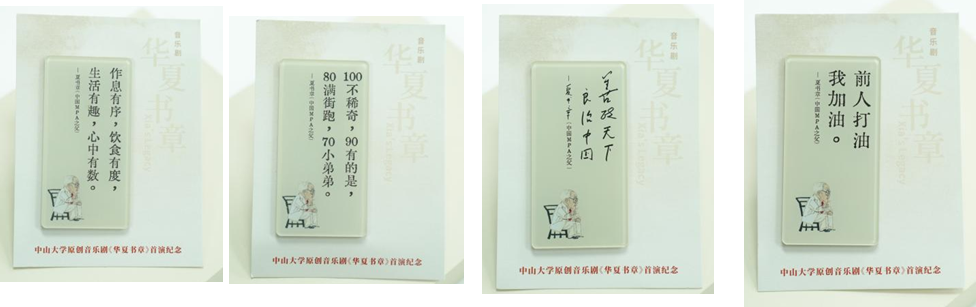 音乐剧
华夏书章
作息有序，饮食有度，
生活有趣，心中有数。
—夏书章（中国MPA之父）
中山大学原创音乐剧《华夏书章》首演纪念
音乐剧
华夏书章
100不稀奇，90有的是，
80满街跑，70小弟弟。
—夏书章（中国MPA之父）
中山大学原创音乐剧《华夏书章》首演纪念
音乐剧
华夏书章
善政天下
良治中国
—夏书章（中国MPA之父）
中山大学原创音乐剧《华夏书章》首演纪念
音乐剧
华夏书章
前人打油
我加油。
—夏书章（中国MPA之父）
中山大学原创音乐剧《华夏书章》首演纪念